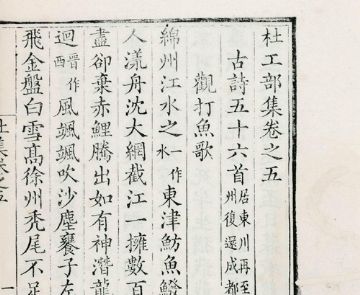 杜工部集卷之五
古詩五十六首居東川再至州復還成都
觀打魚歌
綿州江水之一作水東津魴魚鱍
人漾舟沈大網截江一擁數百
盡卻棄赤鯉騰出如有神潛龍
迴晉作西風颯颯吹沙塵饔子左
飛金盤白雪高徐州秃尾不足